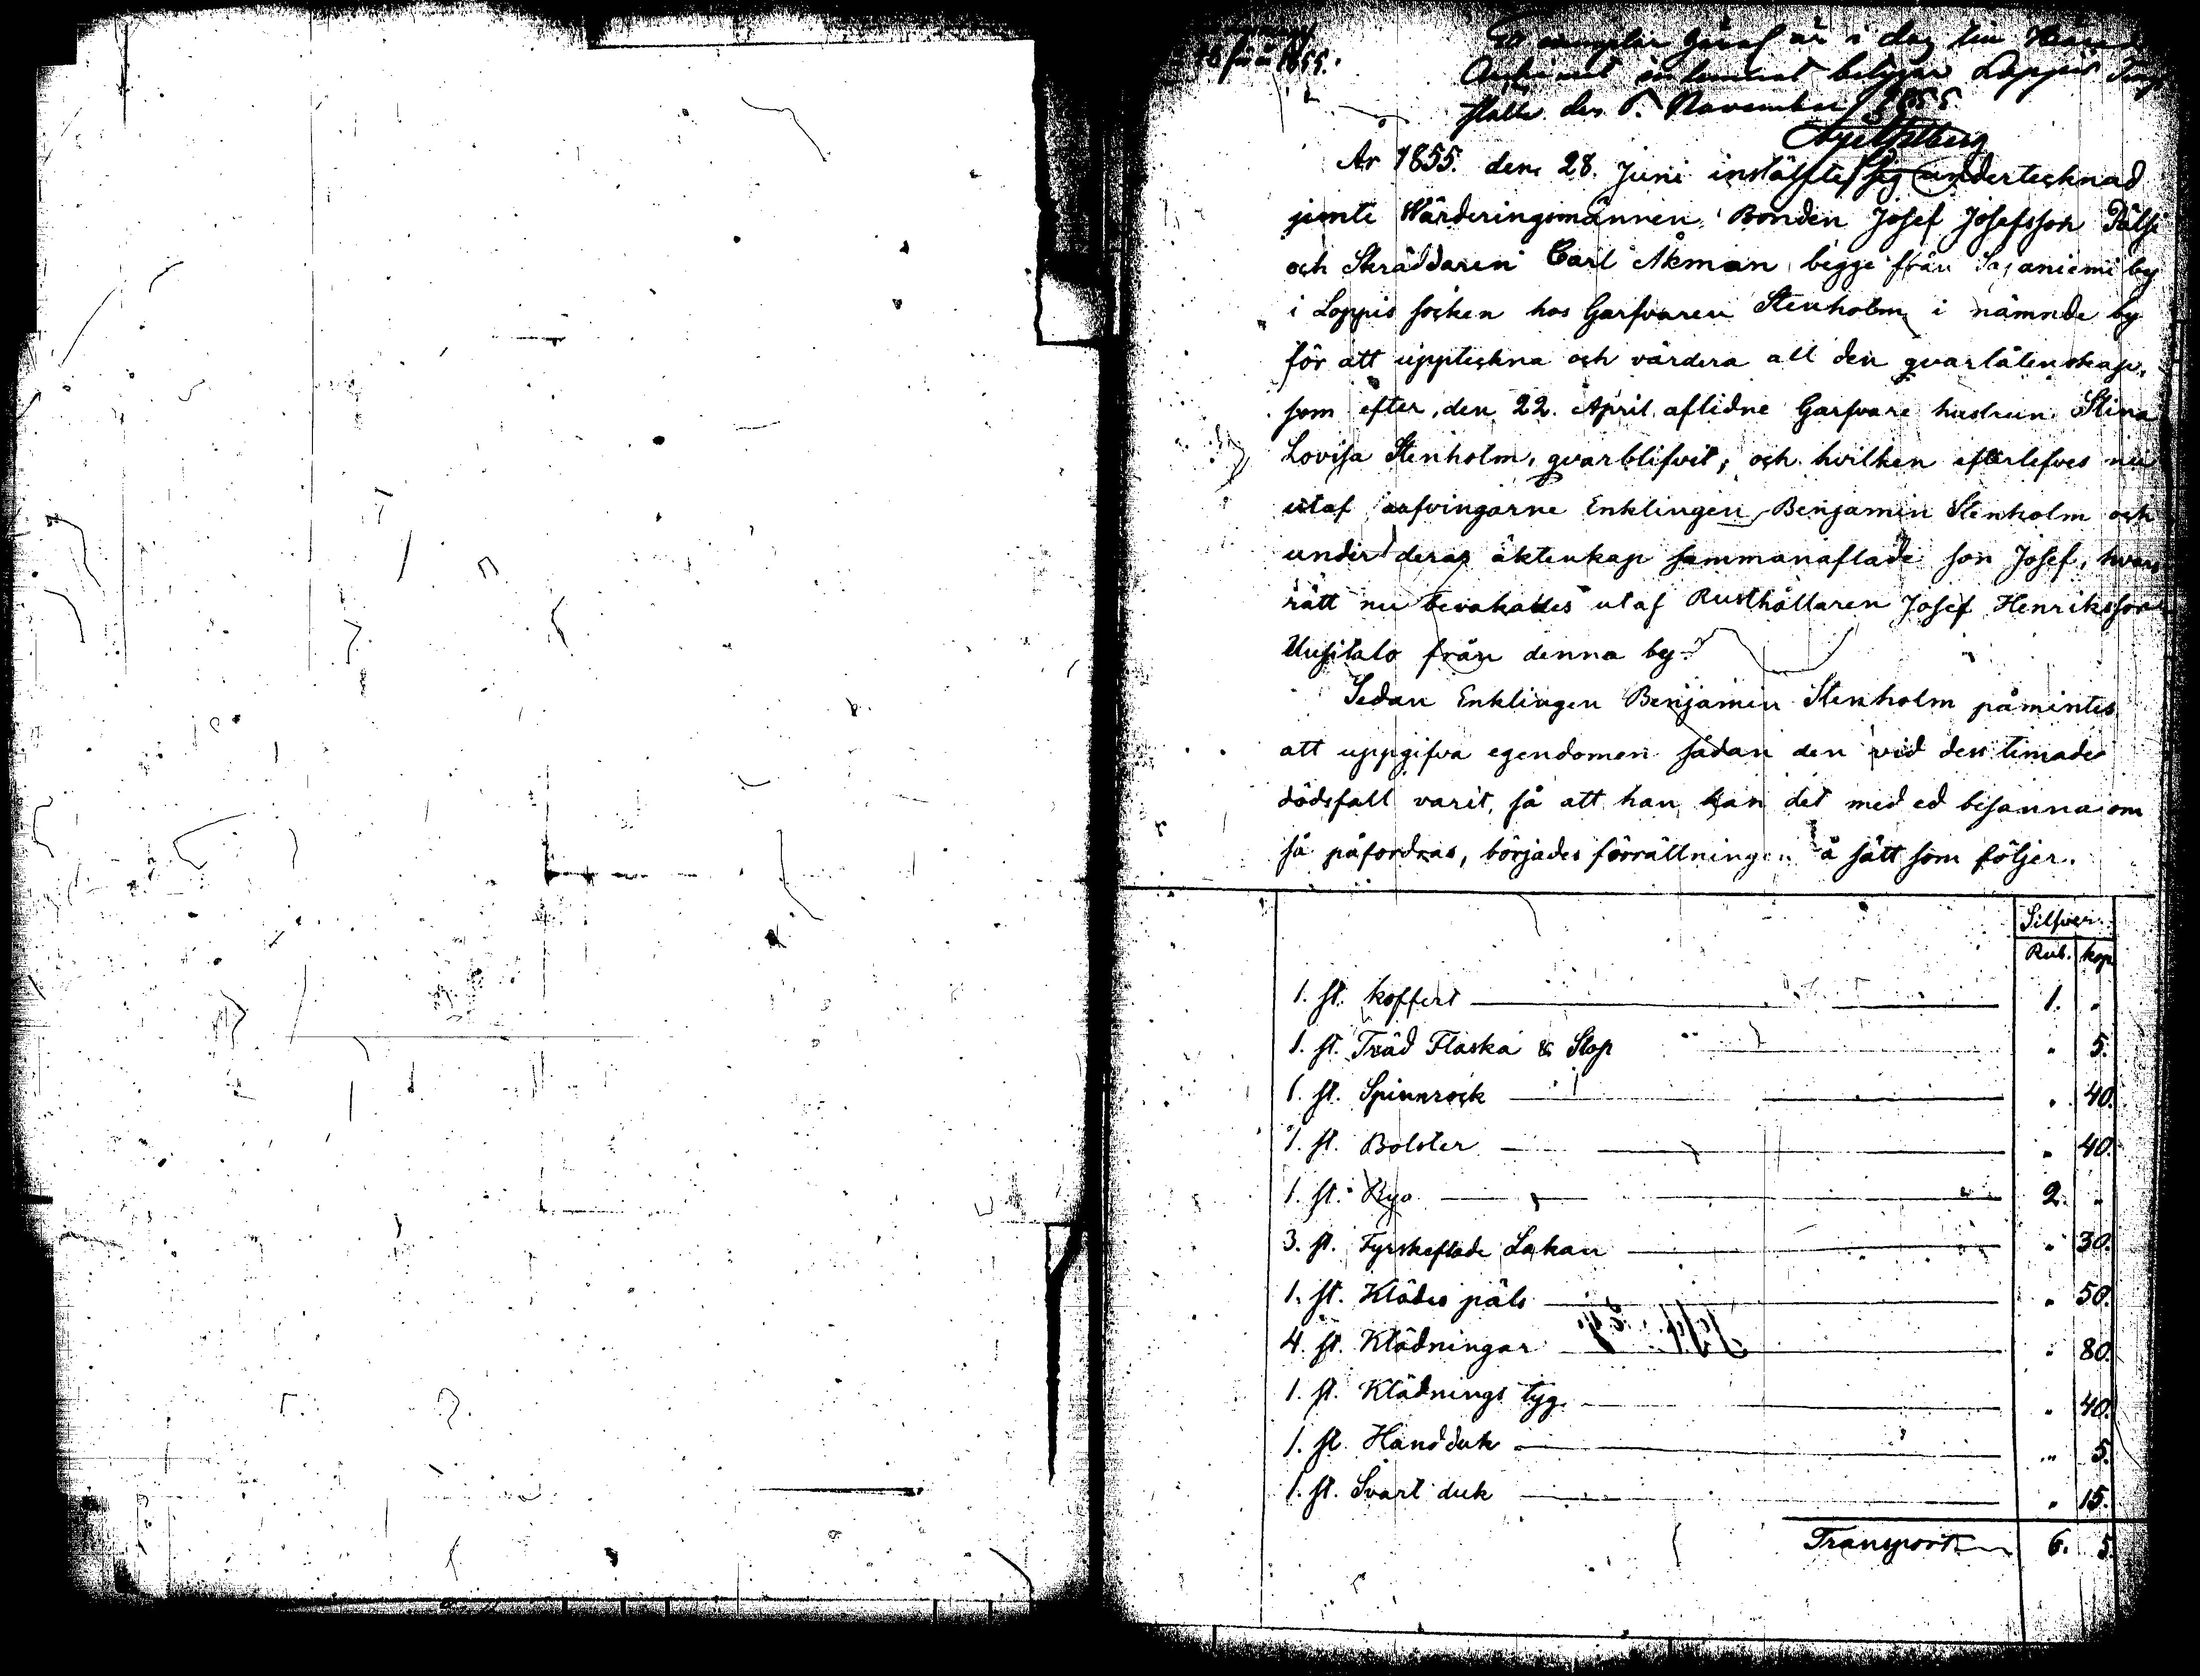 18 1855.
Et exemplar häraf är i dag till Härads
Archivet inlemnat betygar Loppis Ting
ställe den 6. November 1855
År 1855. den 28. Juni instälte sig undertecknad
jemte Wärderingsmännen Bonden Josef Josefsson Pälsi
och Skräddaren Carl Åkman begge från Sajaniemi by
i Loppis socken hos Garfvaren Stenholm i nämnde by
för att uppteckna och värdera all den qvarlåtenskap,
som efter den 22. April aflidne Garfvare hustrun Stina
Lovisa Stenholm, qvarblifvit, och hvilken efterlefves nu
utaf arfvingarne Enklingen Benjamin Stenholm och
under deras äktenkap sammanaflade son Josef, hvars
rätt nu bevakades utaf Rusthållaren Josef Henriksson
Uusitalo från denna by.
Sedan Enklingen Benjamin Stenholm påmintes
att uppgifva egendomen sådan den vid dess timade
dödsfall varit, så att han kan det med ed besanna om
så påfordras, börjades förrättningen å sätt som följer.
Silfver.
Rub. kop
1. st. koffert 1. "
1. st. Träd Flaska & Stop " 5.
1. st. Spinnrock " 40.
1. st. Bolster " 40.
1. st. Rya 2. "
3. st. Fyrskaftade Lakan " 30.
1. st. Klädes päls " 50.
4. st. Klädningar " 80.
1. st. Klädnings tyg " 40.
1. st. Handduk " 5.
1. st. Svart duk " 15.
Transport 6. 5.